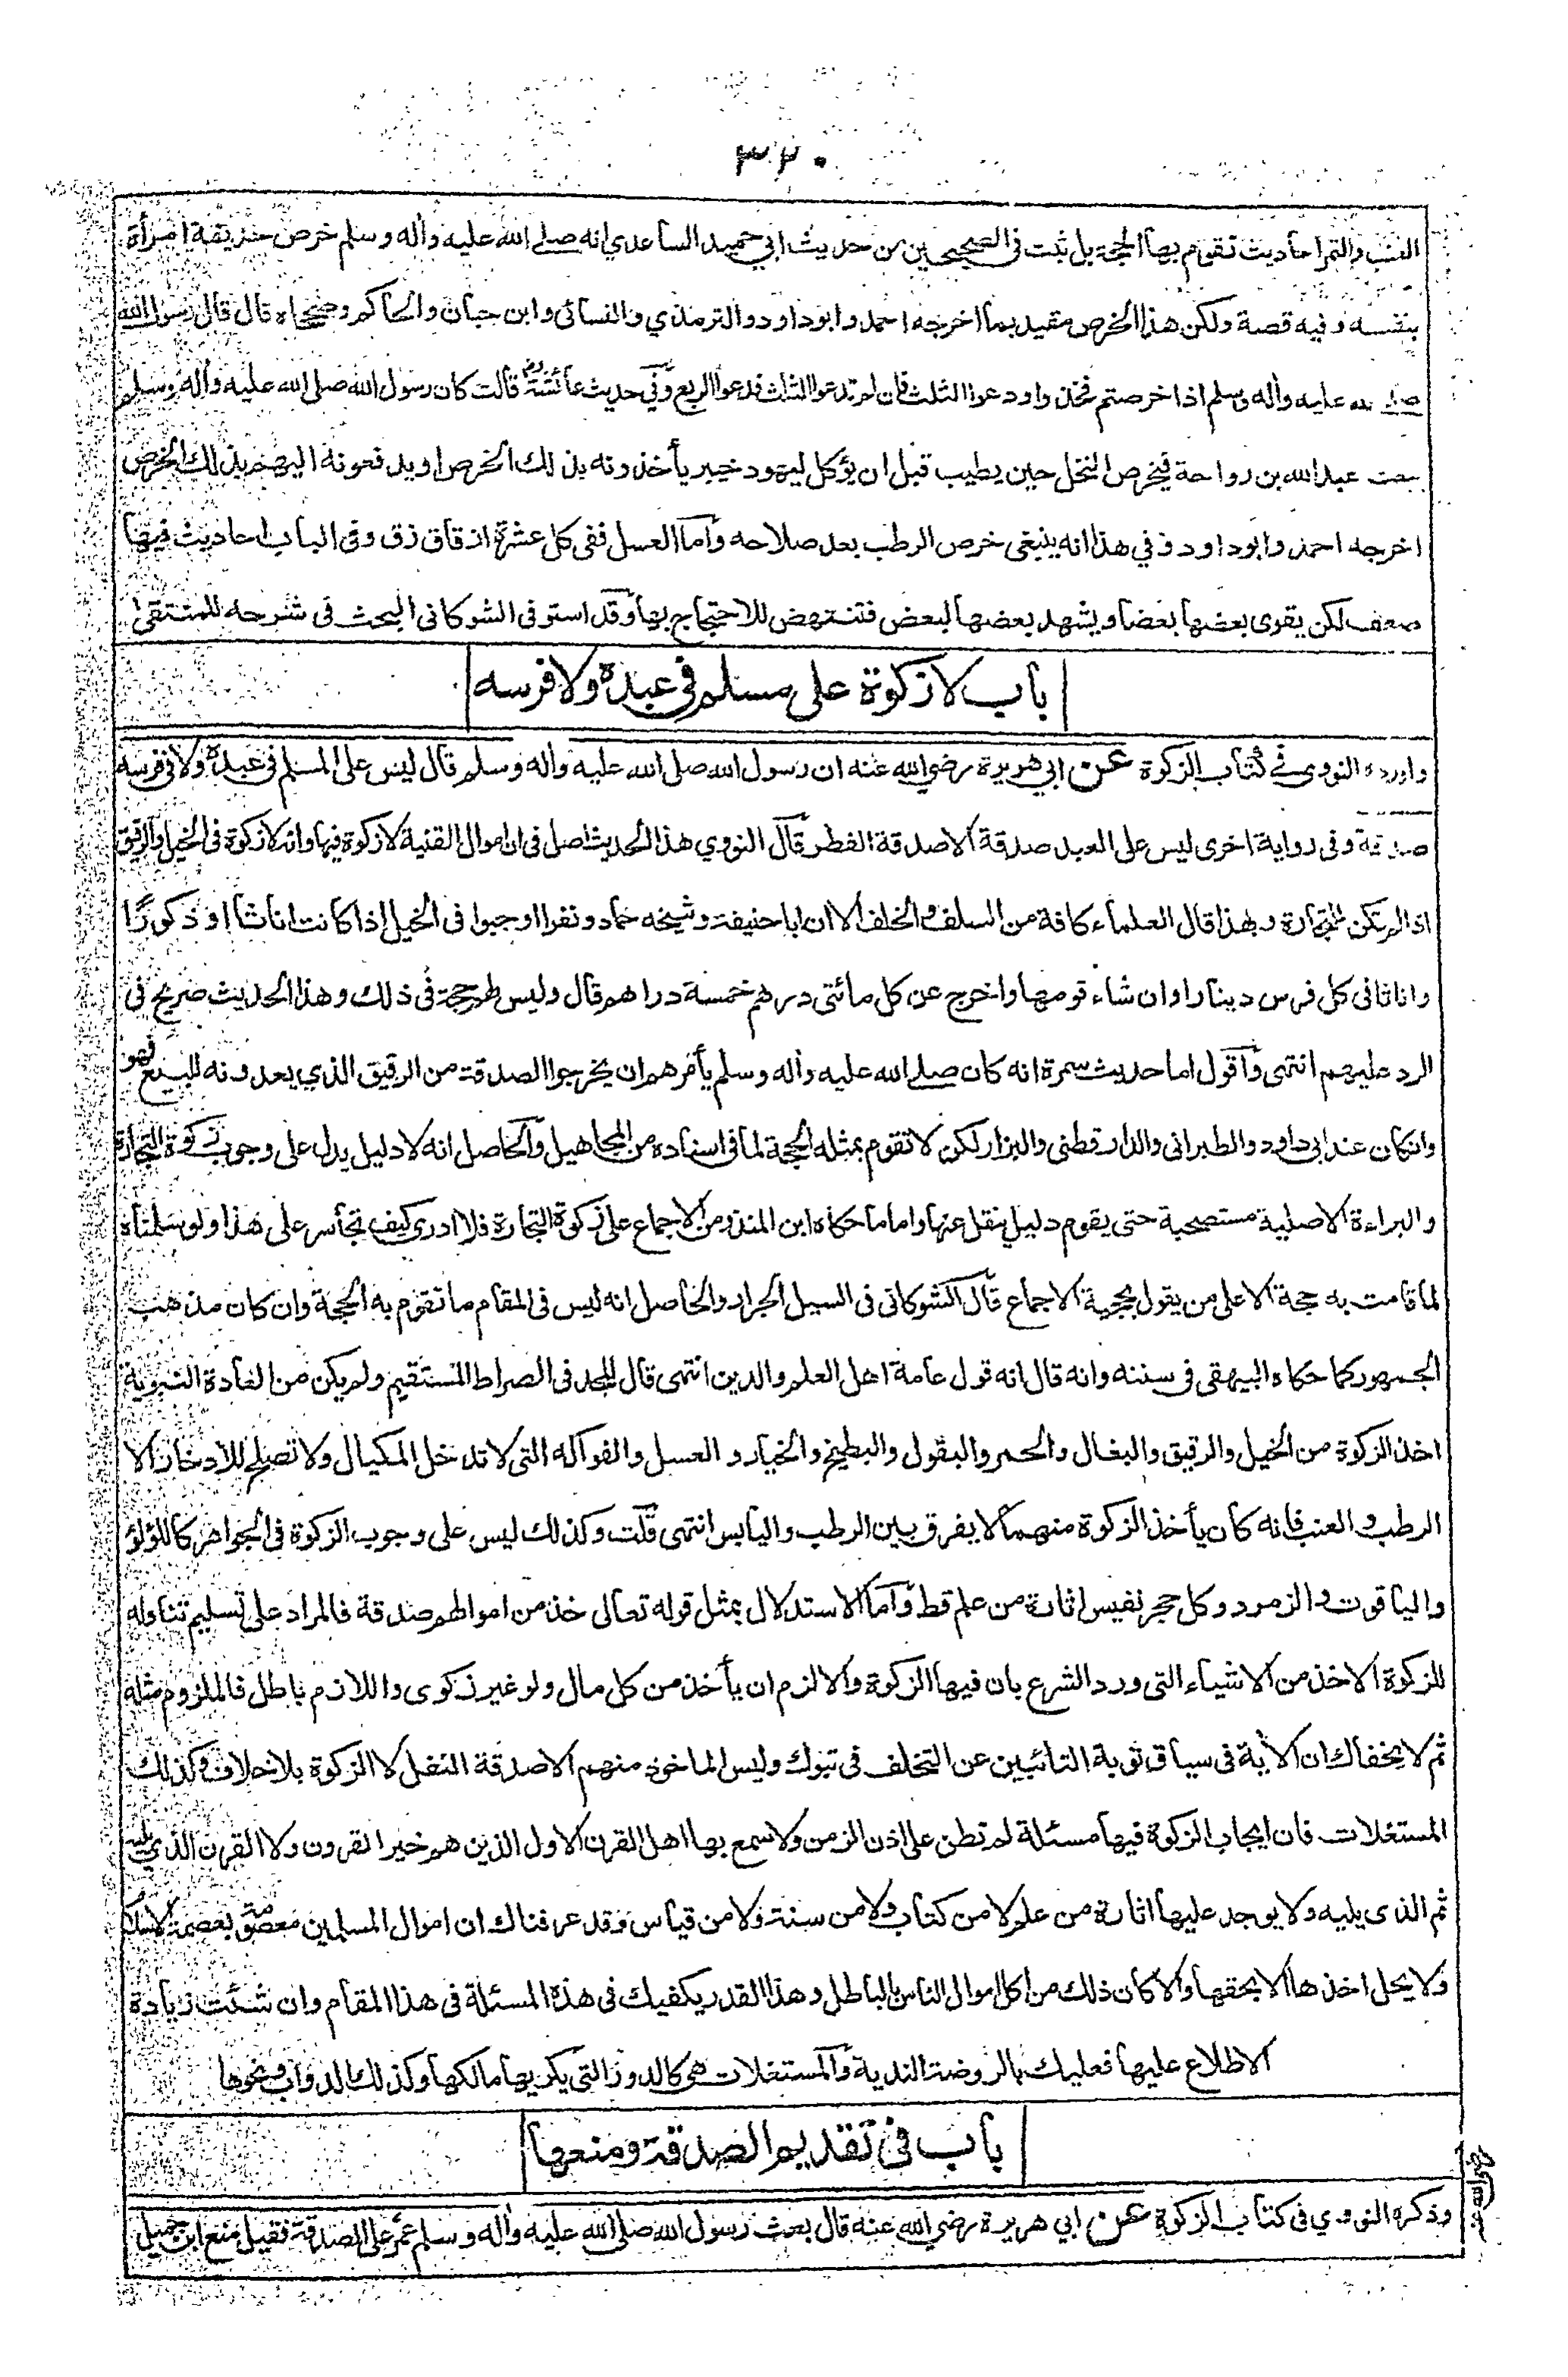 ٣٢٠
العنب والتمر احاديث تقوم بها الحجة بل ثبت في الصحيحين من حديث ابي حميد الساعدي انه صلى الله عليه واٰله وسلم خرص حديقة امرأة
بنفسه وفيه قصة ولكن هذا الخرص مقيد بما اخرجه احمد وابوداود والترمذي والنسائى وابن حبان والحاكم وصححاه قال قال رسول الله
صلى الله عليه واٰله وسلم اذا خرصتم فخذوا ودعوا الثلث فان لم تدعوا الثلث فدعوا الربع وفي حديث عائشة رض قالت كان رسول الله صلى الله عليه واٰله وسلم
يبعث عبد الله بن رواحة فيخرص النخل حين يطيب قبل ان يؤكل ليهود خيبر يأخذونه بذلك الخرص او يدفعونه اليهم بذلك الخرص
اخرجه احمد وابوداود وفي هذا انه ينبغى خرص الرطب بعد صلاحه وأما العسل ففى كل عشرة ازقاق زق وفى الباب احاديث فيها
ضعف لكن يقوى بعضها بعضا ويشهد بعضها لبعض فتنتهض للاحتجاج بها وقد استوفى الشوكانى البحث فى شرحه للمنتقى
باب لا زكوة على مسلم فى عبده ولا فرسه
واورده النووى فى كتاب الزكوة عن ابي هريرة رضي الله عنه ان رسول الله صلى الله عليه واٰله وسلم قال ليس على المسلم فى عبده ولا فى فرسه
صدقة وفى رواية اخرى ليس على العبد صدقة الا صدقة الفطر قال النووي هذا الحديث اصل فى ان اموال القنية لا زكوة فيها وانه لا زكوة فى الخيل والرقيق
اذا لم تكن للتجارة وبهذا قال العلماء كافة من السلف والخلف الا ان ابا حنيفة وشيخه حماد ونفرا اوجبوا فى الخيل اذا كانت اناثا او ذكورًا
واناثا فى كل فرس دينارا وان شاء قومها واخرج عن كل مائتى درهم خمسة دراهم قال وليس لهم حجة فى ذلك وهذا الحديث صريح فى
الرد عليهم انتهى وأقول اما حديث سمرة انه كان صلى الله عليه واٰله وسلم يأمرهم ان يخرجوا الصدقة من الرقيق الذي يعدونه للبيع فهو
وانكان عند ابى داود والطبرانى والدارقطنى والبزار لكن لا تقوم بمثله الحجة لما فى اسناده من المجاهيل والحاصل انه لا دليل يدل على وجوب زكوة التجارة
والبراءة الاصلية مستصحبة حتى يقوم دليل ينقل عنها واما ما حكاه ابن المنذر من الاجماع على زكوة التجارة فلا ادرى كيف تجأسر على هذا ولو سلمناه
لما قامت به حجة الا على من يقول بحجية الاجماع قال الشوكانى فى السيل الجرار والحاصل انه ليس فى المقام ما تقوم به الحجة وان كان مذهب
الجمهور كما حكاه البيهقى فى سننه وانه قال انه قول عامة اهل العلم والدين انتهى قال المجد فى الصراط المستقيم ولم يكن من العادة النبوية
اخذ الزكوة من الخيل والرقيق والبغال والحمر والبقول والبطيخ والخيار و العسل والفواكه التى لا تدخل المكيال ولا تصلح للادخار الا
الرطب والعنب فانه كان يأخذ الزكوة منهما لا يفرق بين الرطب واليابس انتهى قلت وكذلك ليس على وجوب الزكوة فى الجواهر كاللؤلؤ
والياقوت والزمرد وكل حجر نفيس اثارة من علم قط وأما الاستدلال بمثل قوله تعالى خذ من اموالهم صدقة فالمراد على تسليم تناوله
للزكوة الاخذ من الاشياء التى ورد الشرع بان فيها الزكوة والا لزم ان يأخذ من كل مال ولو غير زكوى واللازم باطل فالملزوم مثله
ثم لا يخفاك ان الاٰية فى سياق توبة التائبين عن التخلف فى تبوك وليس الماخوذ منهم الا صدقة النفل لا الزكوة بلا خلاف وكذلك
المستغلات فان ايجاب الزكوة فيها مسئلة لم تطن على اذن الزمن ولا سمع بها اهل القرن الاول الذين هم خير القرون ولا القرن الذي يليه
ثم الذى يليه ولا يوجد عليها اثارة من علم لا من كتاب ولا من سنة ولا من قياس وقد عرفناك ان اموال المسلمين معصومة بعصمة الاسلام
ولا يحل اخذها الا بحقها والا كان ذلك من اكل اموال الناس بالباطل وهذا القدر يكفيك فى هذة المسئلة فى هذا المقام وان شئت زيادة
الاطلاع عليها فعليك بالروضة الندية والمستغلات هى كالدور التى يكريها مالكها وكذلك الدواب ونحوها
باب فى تقديم الصدقة ومنعها
وذكره النووي فى كتاب الزكوة عن ابي هريرة رضي الله عنه قال بعث رسول الله صلى الله عليه واٰله وسلم عمر على الصدقة فقيل منع ابن جميل
رضي الله عنه